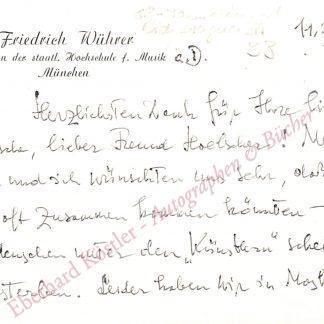 11.
Friedrich Wührer
n der staatl. Hochschule f. Musik a.D.
München
33
Herzlichsten Dank für Ihre
lieber Freund Hoelscher! M
und ich wünschten uns sehr, das
oft zusammen kommen könnten –
enschen unter den „Künstlern" sche
sterben. Leider haben wir in
Eberhard Köstler - Autographen & Bücher